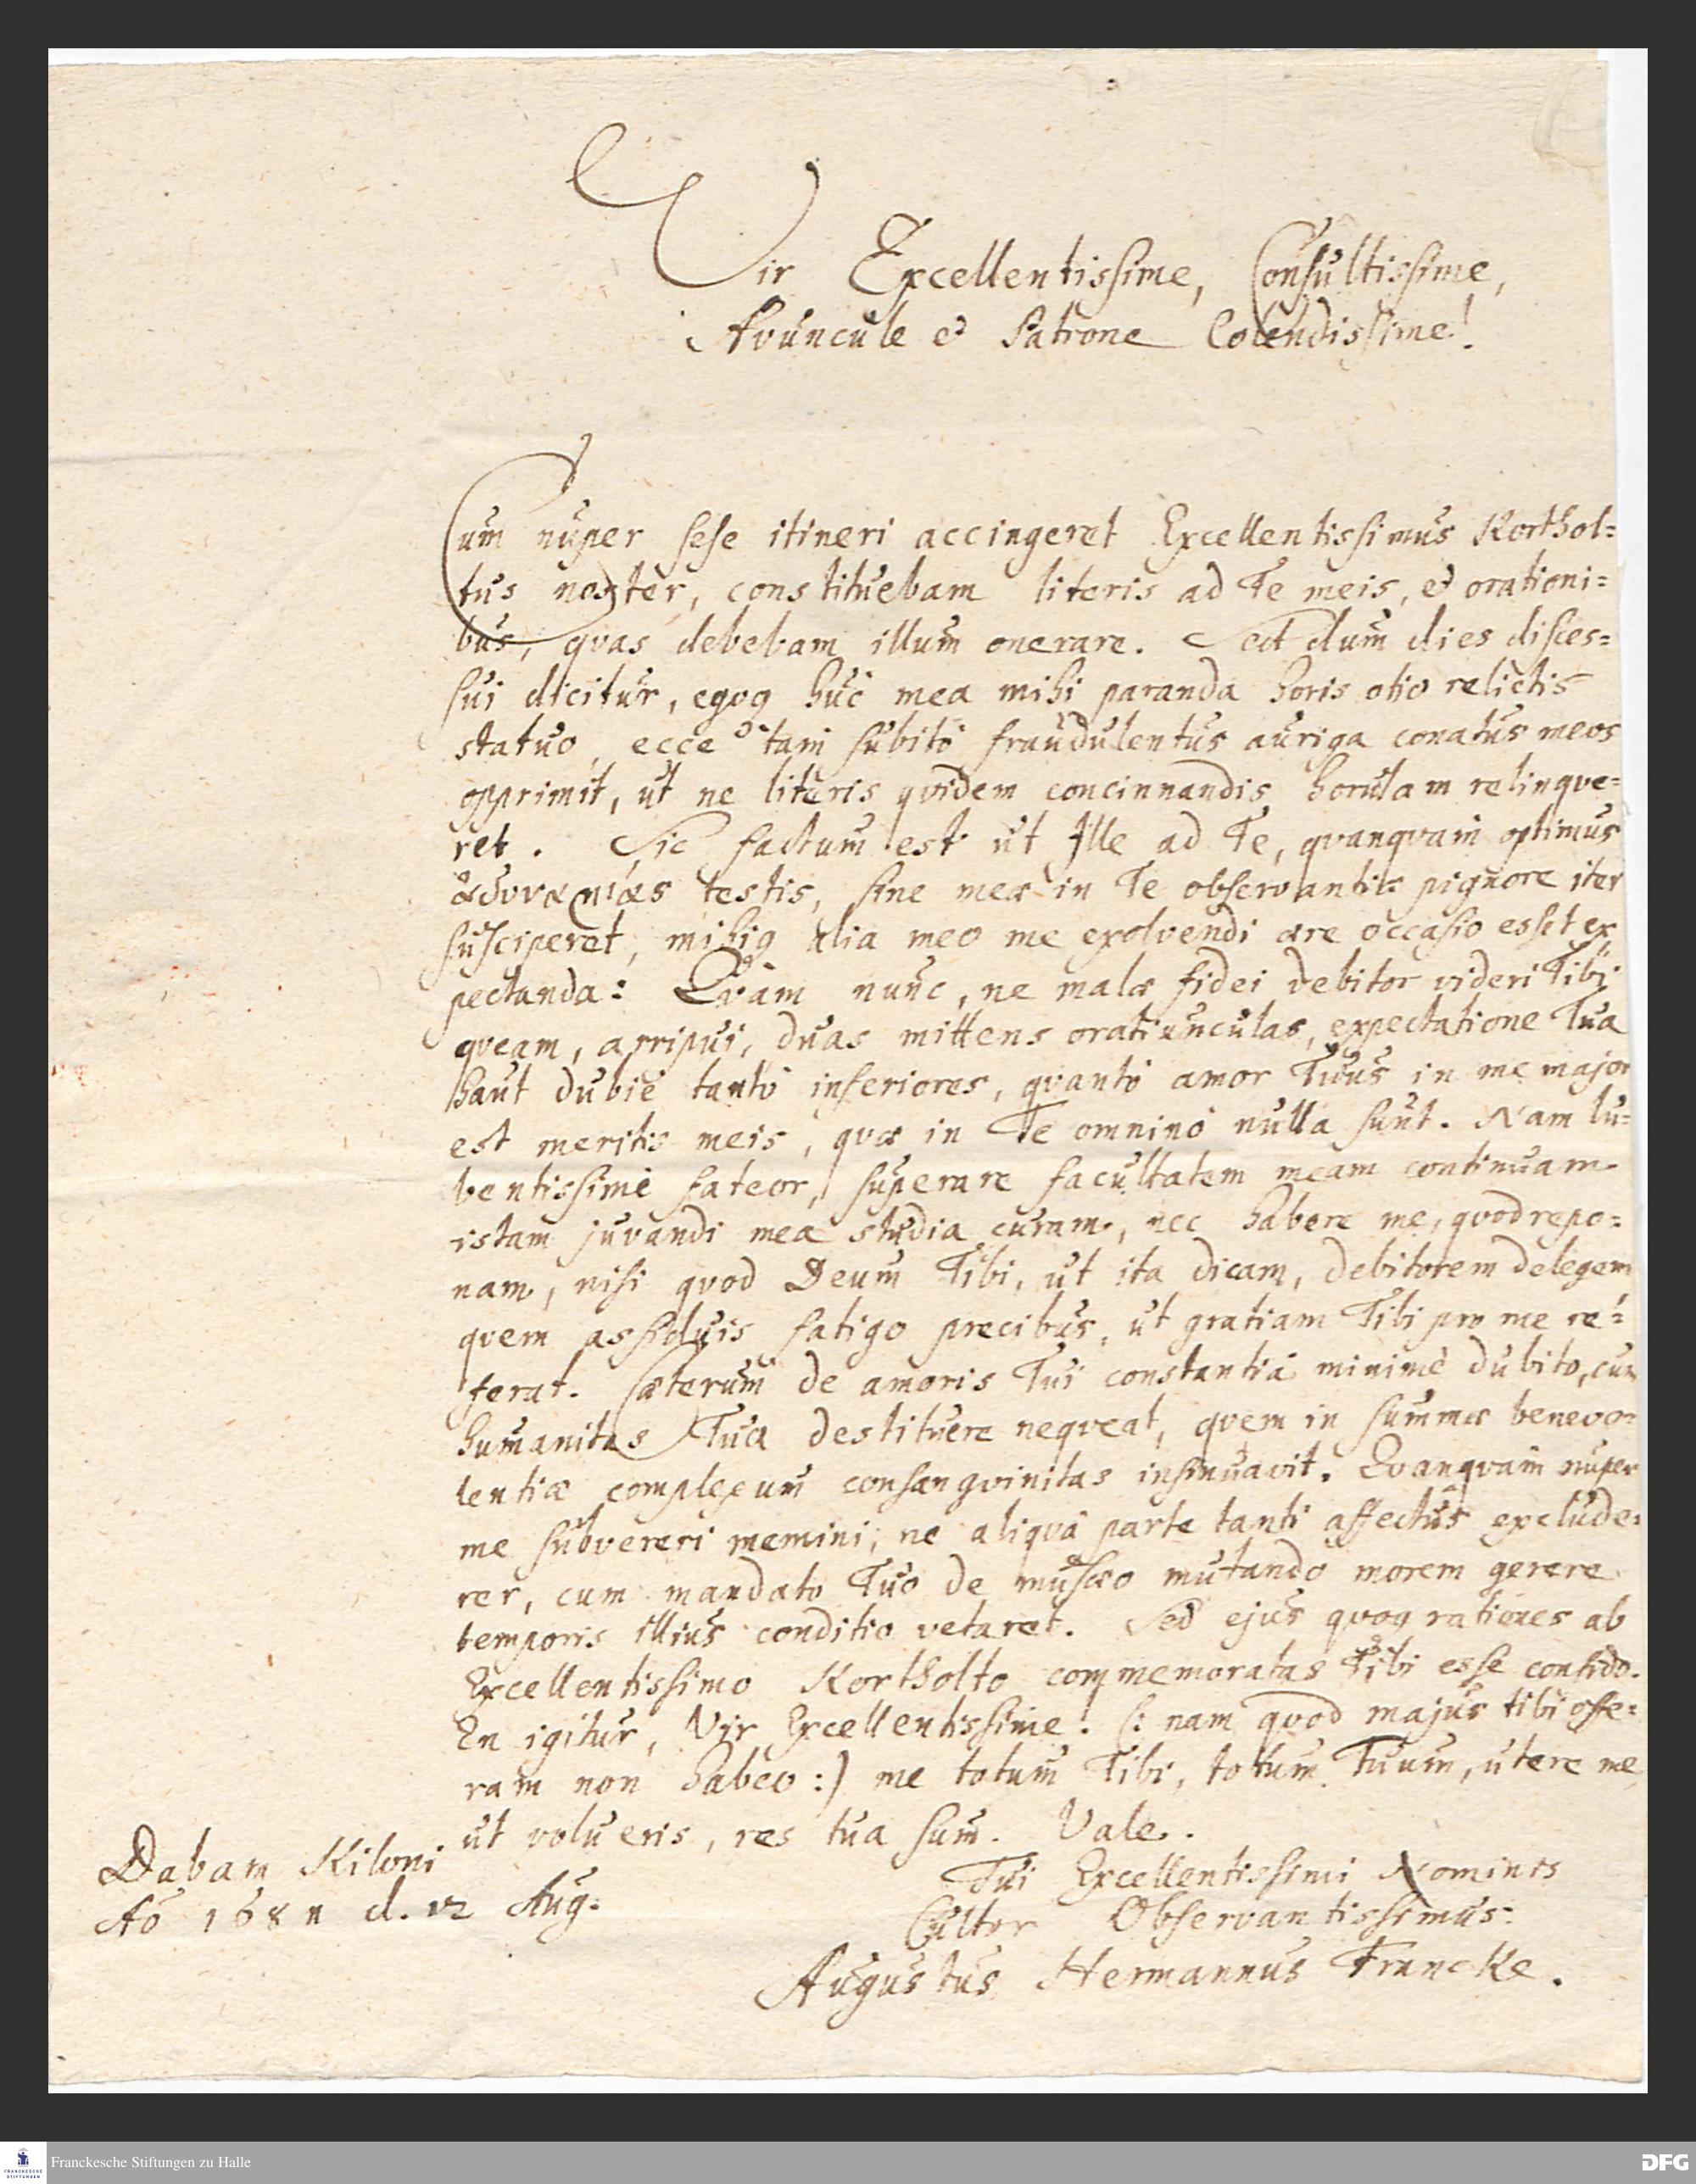 Vir Excellentissime, Consultissime,
Avuncule et Patrone Colendissime!
Cum nuper sese itineri accingeret Excellentissimus Korthol=
tus noster, constituebam literis ad Te meis, et orationi=
bus, qvas debebam illum onerare. Sed dum dies disces=
sui dicitur, egoq huc mea mihi paranda horis otio relictis
statuo, ecce tam subitò fraudulentus auriga conatus meos
opprimit, ut ne literis qvidem concinnandis horulam relinqve=
ret. Sic factum est ut Ille ad Te, qvanqvam optimus
ἀδυναμίας testis, sine meæ in Te observantiæ pignore iter
susciperet, mihiq alia meo me exolvendi ære occasio esset ex
pectanda: Qvam nunc, ne malæ fidei debitor videri Tibi
qveam, arripui, duas mittens oratiunculas, expectatione Tua
haut dubiè tantò inferiores, qvantò amor Tuus in me major
est meritis meis, qvæ in Te omninò nulla sunt. Nam lu=
bentissimè fateor, superare facultatem meam continuam
istam juvandi mea studia curam, nec habere me, qvod repo=
nam, nisi qvod Deum Tibi, ut ita dicam, debitorem delegem
qvem assiduis fatigo precibus, ut gratiam Tibi pro me re=
ferat. Cæterum de amoris Tui constantiâ minimè dubito, cum
humanitas Tua destituere neqveat, qvem in summæ benevo=
lentiæ complexum consangvinitas insinuavit. Qvanqvam nuper
me subvereri memini, ne aliqvâ parte tanti affectûs exclude=
rer, cum mandato Tuo de musæo mutando morem gerere
temporis illius conditio vetaret. Sed ejus qvoq rationes ab
Excellentissimo Kortholto commemoratas Tibi esse confido.
En igitur, Vir Excellentissime! (: nam qvod majus tibi offe=
ram non habeo :) me totum Tibi, totum Tuum, utere me
ut volueris, res tua sum. Vale.
Dabam Kiloni
Aō 168 d. 12 Aug:
Tui Excellentissimi Nominis
Cultor Observantissimus:
Augustus Hermannus Francke.
FRANCKESCHE STIFTUNGEN
Franckesche Stiftungen zu Halle
DFG